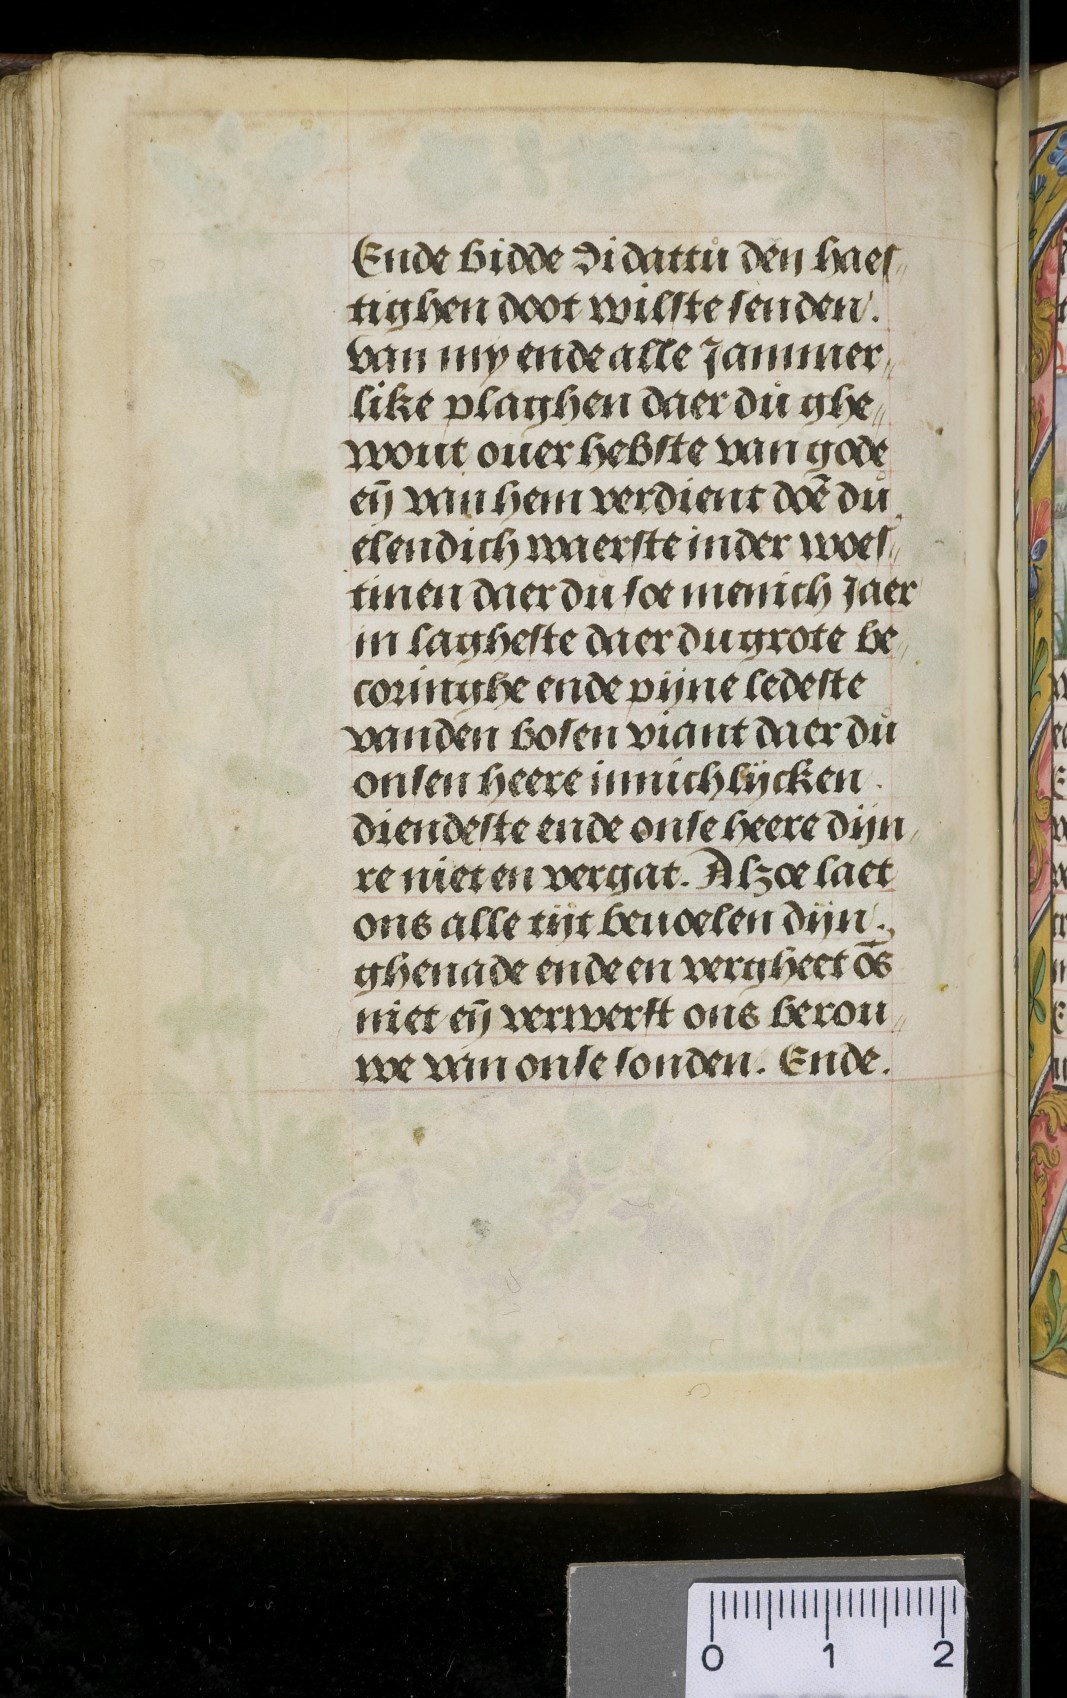 Ende bidde di dattu den haes„
tighen doot wilste senden.
van my ende alle Jammer„
like plaghen daer du ghe„
wout ouer hebste van gode
en̄ van hem verdient doē du
elendich waerste inder woes„
tinen daer du soe menich Jaer
in lagheste daer du grote be„
coringhe ende pijne ledeste
vanden bosen viant daer du
onsen heere innichlijcken.
diendeste ende onse heere dijn„
re niet en vergat. Alzoe laet
ons alle tijt beuoelen dijn.„
ghenade ende en vergheet ōs
niet en̄ verwerft ons berou„
we van onse sonden. Ende.
0 1 2